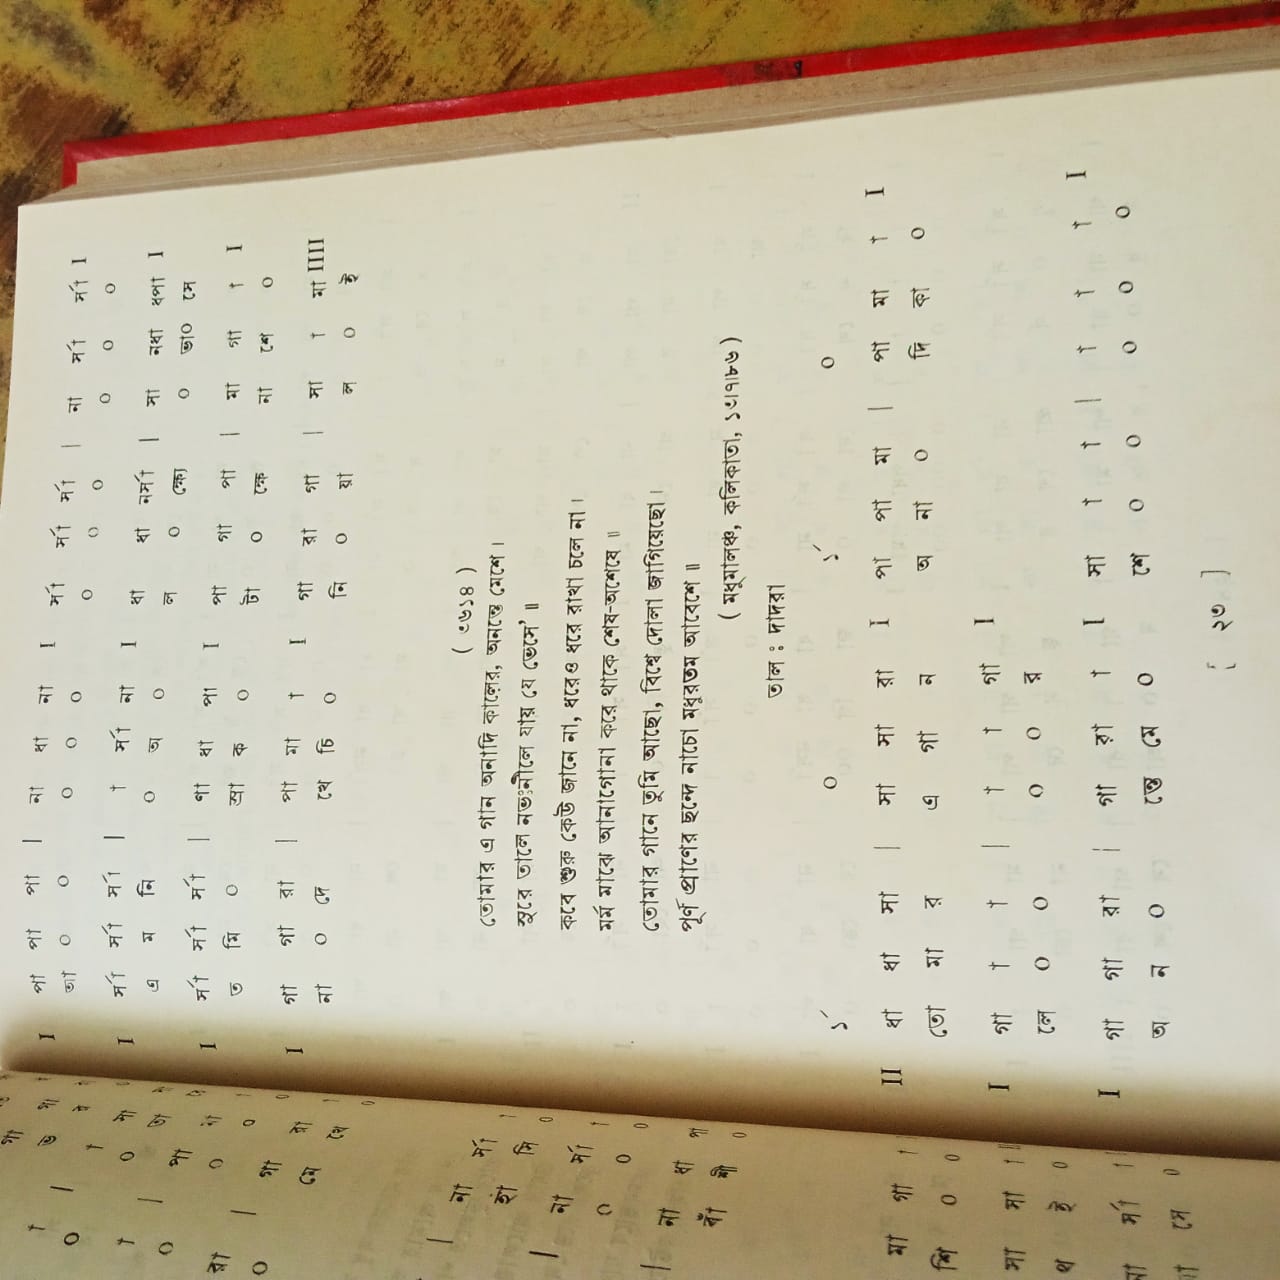 I পা পা পা | না ধা না I র্সা র্সা র্সা | না র্সা র্সা I
আ ০ ০ ০ ০ ০ ০ ০ ০ ০ ০ ০
I র্সা র্সা র্সা | া র্সা না I ধা ধা নর্সা | সা নধা ধপা I
এ ম নি ০ অ ০ ল ০ ক্ষ্যে ০ ভা০ সে
I র্সা র্সা র্সা | ণা ধা পা I পা গা পা | মা গা া I
ত মি ০ আ ক ০ টা ০ ক্ষে না শে ০
I গা গা রা | পা মা া I গা রা গা | সা া মা IIII
না ০ দে খে চি ০ নি ০ য়া ল ০ ই
( ৩৬১৪ )
তোমার এ গান অনাদি কালের, অনন্তে মেশে ।
সুরে তালে নভঃনীলে যায় যে ভেসে' ॥
কবে শুরু কেউ জানে না, ধরেও ধরে রাখা চলে না ।
মর্ম মাঝে আনাগোনা করে থাকে শেষ-অশেষে ॥
তোমার গানে তুমি আছো, বিশ্বে দোলা জাগিয়েছো ।
পূর্ণ প্রাণের ছন্দে নাচো মধুরতম আবেশে ॥
( মধুমালঞ্চ, কলিকাতা, ১৫।৭।৮৬ )
তাল : দাদরা
১´ ০ ১´ ০
II ধা ধা সা | সা সা রা I পা পা মা | পা মা া I
তো মা র এ গা ন অ না ০ দি কা ০
I গা া া | া া গা I
লে ০ ০ ০ ০ র
I গা গা রা | গা রা া I সা া া | া া া I
অ ন ০ ন্তে মে ০ শে ০ ০ ০ ০ ০
[ ২৩ ]